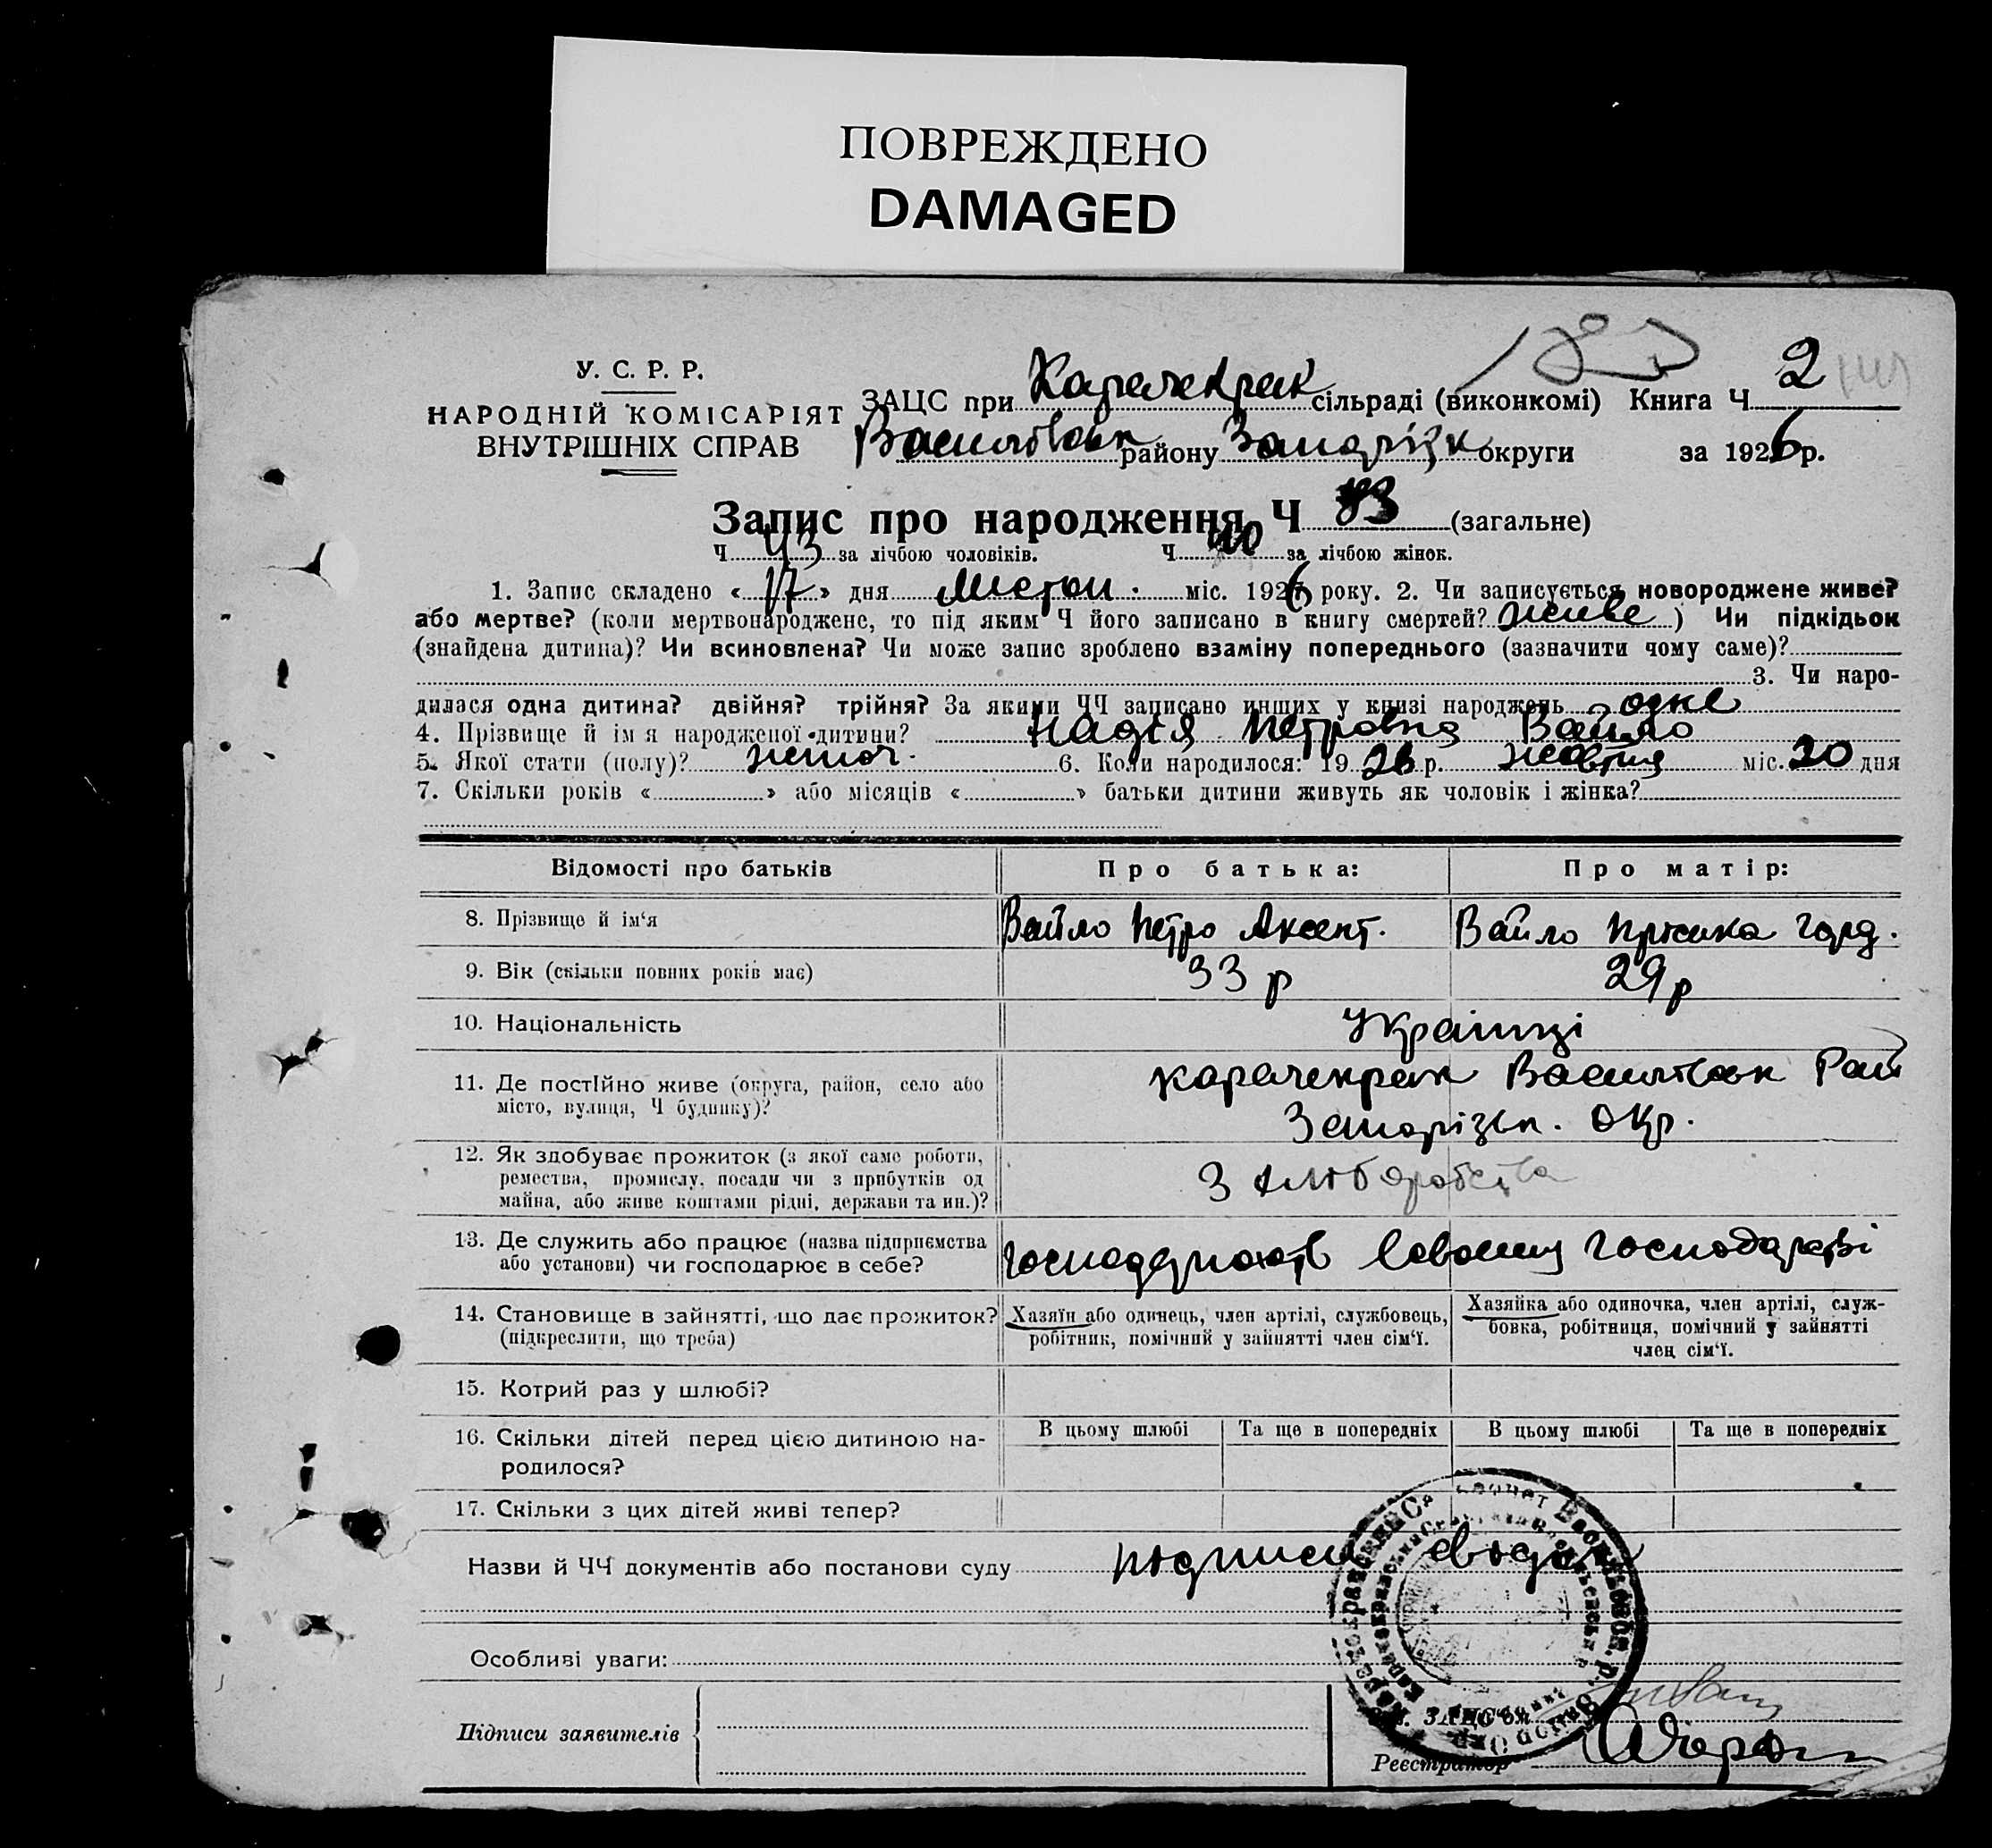 ПОВРЕЖДЕНО
DAMAGED
У. С. Р. Р.
НАРОДНІЙ КОМІСАРІЯТ
ВНУТРІШНІХ СПРАВ
ЗАЦС при Карачекрак сільраді (виконкомі) Книга Ч 2
Василівськ району Запоріжк округи за 1926 р.
Запис про народження Ч 83 (загальне)
Ч 43 за лічбою чоловіків. Ч 40 за лічбою жінок.
1. Запис складено « 17 » дня Листоп. міс. 1926 року. 2. Чи записується новороджене живе?
або мертве? (коли мертвонароджене, то під яким Ч його записано в книгу смертей? живе ) Чи підкідьок
(знайдена дитина)? Чи всиновлена? Чи може запис зроблено взаміну попереднього (зазначити чому саме)?
3. Чи наро-
дилася одна дитина? двійня? трійня? За якими ЧЧ записано инших у книзі народжень одне
4. Прізвище й ім я народженої дитини? Надія Петровна Вайло
5. Якої стати (полу)? жіноч. 6. Коли народилося: 19 26 р. жовтня міс. 20 дня
7. Скільки років « » або місяців « » батьки дитини живуть як чоловік і жінка?
Відомості про батьків Про батька: Про матір:
8. Прізвище й ім‘я Вайло Петро Аксент. Вайло Пріська Горд.
9. Вік (скільки повних років має) 33 р 29 р
10. Національність Українці
11. Де постійно живе (округа, район, село або
місто, вулиця, Ч будинку)? Карачекрак Василівськ Рай
Запорізьк. Окр.
12. Як здобуває прожиток (з якої саме роботи,
ремества, промислу, посади чи з прибутків од
майна, або живе коштами рідні, держави та ин.)? З хліборобства
13. Де служить або працює (назва підприємства
або установи) чи господарює в себе? господарюють в своему господарстві
14. Становище в зайнятті, що дає прожиток?
(підкреслити, що треба)
Хазяїн або одинець, член артілі, службовець,
робітник, помічний у зайнятті член сім‘ї.
Хазяйка або одиночка, член артілі, служ-
бовка, робітниця, помічний у зайнятті
член сім‘ї.
15. Котрий раз у шлюбі?
16. Скільки дітей перед цією дитиною на-
родилося?
В цьому шлюбі Та ще в попередніх В цьому шлюбі Та ще в попередніх
17. Скільки з цих дітей живі тепер?
Назви й ЧЧ документів або постанови суду
Особливі уваги:
Підписи заявителів
Реєстратор